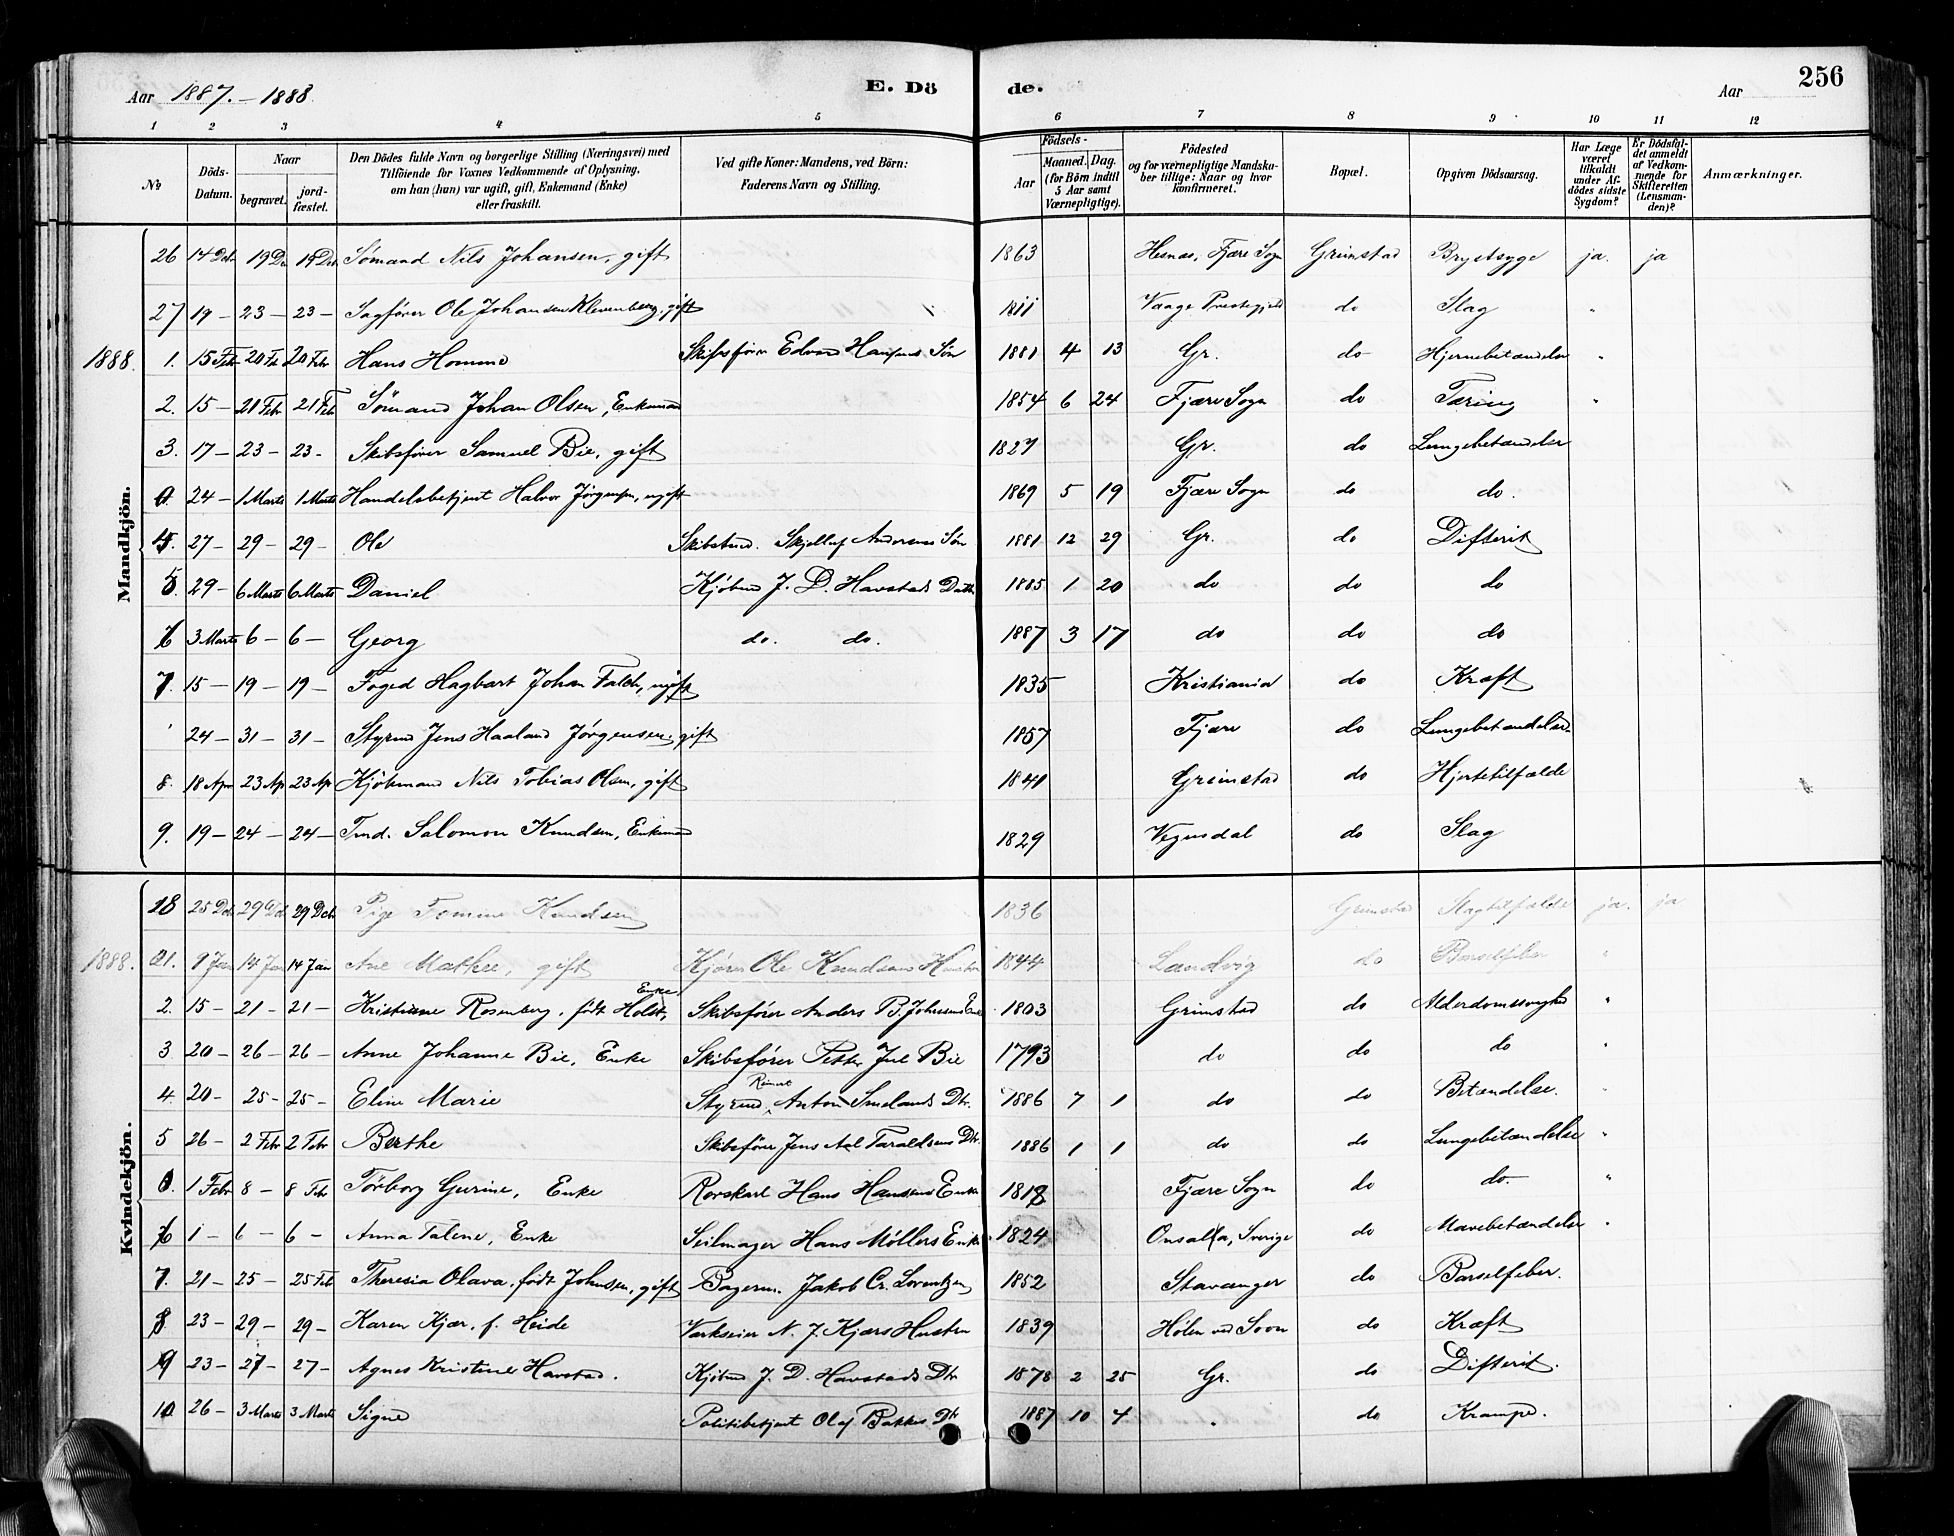 Aar 1887.-1888. E. Döde. Aar 256
1 2 3 4 5 6 7 8 9 10 11 12
No
Döds-Datum.
Naar begravet. jordfæstet.
Den Dödes fulde Navn og borgerlige Stilling (Næringsvei) med
Tilföiende for Voxnes Vedkommende af Oplysning,
om han (hun) var ugift, gift, Enkemand (Enke)
eller fraskilt.
Ved gifte Koner: Mandens, ved Börn:
Faderens Navn og Stilling.
Födsels-
Aar Maaned. Dag.
(for Börn indtil
5 Aar samt
Værnepligtige).
Födested
og for værnepligtige Mandska-
ber tillige: Naar og hvor
konfirmeret.
Bopæl.
Opgiven Dödsaarsag.
Har Læge
været
tilkaldt
under Af-
dödes sidste
Sygdom?
Er Dödsfal-
det anmeldt
af Vedkom-
mende for
Skifteretten
(Lensman-
den)?
Anmærkninger.
Mandkjön.
26 14 Dcb 19 D 19 Dcb Sømand Nils Johansen, gift 1863 Hesnæs, Fjære Sogn Grimstad Brystsyge ja. ja
27 19 - 23 - 23 - Sagfører Ole Johansen Klevenberg, gift 1811 Vaage Prestegjeld do Slag "
1888. 1. 15 Febr 20 Fe 20 Febr Hans Homme Skibsfører Edvard Hansens Søn 1881 4 13 Gr. do Hjernebetændelse "
2. 15 - 21 Febr 21 Feb Sømand Johan Olsen, Enkemand 1854 6 24 Fjære Sogn do Tæring "
3. 17 - 23 - 23 - Skibsfører Samuel Bie, gift 1827 Gr. do Lungebetændelse
24 - 1 Marts 1 Marts Handelsbetjent Halvor Jørgensen, ugift 1869 5 19 Fjære Sogn do do.
4. 27 - 29 - 29 - Ole Skibstmd. Skjelluf Andersens Søn 1881 12 29 Gr. do Difterit
5. 29 - 6 Marts 6 Marts Daniel Kjøbmd J. D. Havstads Datter 1885 1 20 do do do
6 3 Marts 6 - 6 - Georg do. do. 1887 3 17 do do do
7. 15 - 19 - 19 - Foged Hagbart Johan Falch, ugift 1835 Kristiania do Kræft
24 - 31 - 31 - Styrmd Jens Haaland Jørgensen, gift 1857 Fjære do Lungebetændelse
8. 18 Apr 23 Ap 23 Ap Kjøbmand Nils Tobias Olsen, gift 1841 Grimstad do Hjertetilfælde
9. 19 - 24 - 24 - Tmd. Salomon Knudsen, Enkemand 1829 Vegusdal do Slag
Kvindekjön.
18 25 Dcb 29 Dcb 29 Dcb Pige Tomine Knudsen 1836 Grimstad Slagtilfælde ja. ja
1888. 1. 9 Jan 14 Jan 14 Jan Ane Mathee, gift Kjører Ole Knudsens Hustru 1844 Landvig do Barselfeber "
2. 15 - 21 - 21 - Kristiane Rosenberg, født Holst, Enke Skibsfører Anders B. Johnsens Enke 1803 Grimstad do Alderdomssvaghed "
3 20 - 26 - 26 - Anne Johanne Bie, Enke Skibsfører Petter Jul Bie 1793 do do do "
4. 20 - 25 - 25 - Eline Marie Styrmd Reinert Anton Smelands Dtr. 1886 7 1 do do Betændelse. "
5 26 - 2 Febr 2 Febr Berthe Skibsfører Jens Aal Taraldsens Dtr. 1886 1 1 do do Lungebetændelse "
1 Febr 8 - 8 Febr Tørborg Gurine, Enke Rorskarl Hans Hansens Enke 1818 Fjære Sogn do do "
6 1 - 6 - 6 - Anna Talene, Enke Seilmager Hans Møllers Enke 1824 Onsala, Sverige do Mavebetændelse "
7. 21 - 25 - 25 Feb Theresia Olava, født Johnsen, gift Bagerm. Jakob Cr. Lorentzen 1852 Stavanger do Barselfeber.
8 23 - 29 - 29 - Karen Kjær, f. Heide Værkseier N. J. Kjærs Hustru 1839 Hølen ved Soon do Kræft
9 23 - 27 - 27 - Agnes Kristine Havstad. Kjøbmd J. D. Havstads Dtr 1878 2 25 Gr. do Difterit.
10 26 - 3 Marts 3 Marts Signe Politibetjent Olaf Bakkes Dtr 1887 10 4 " do Krampe.